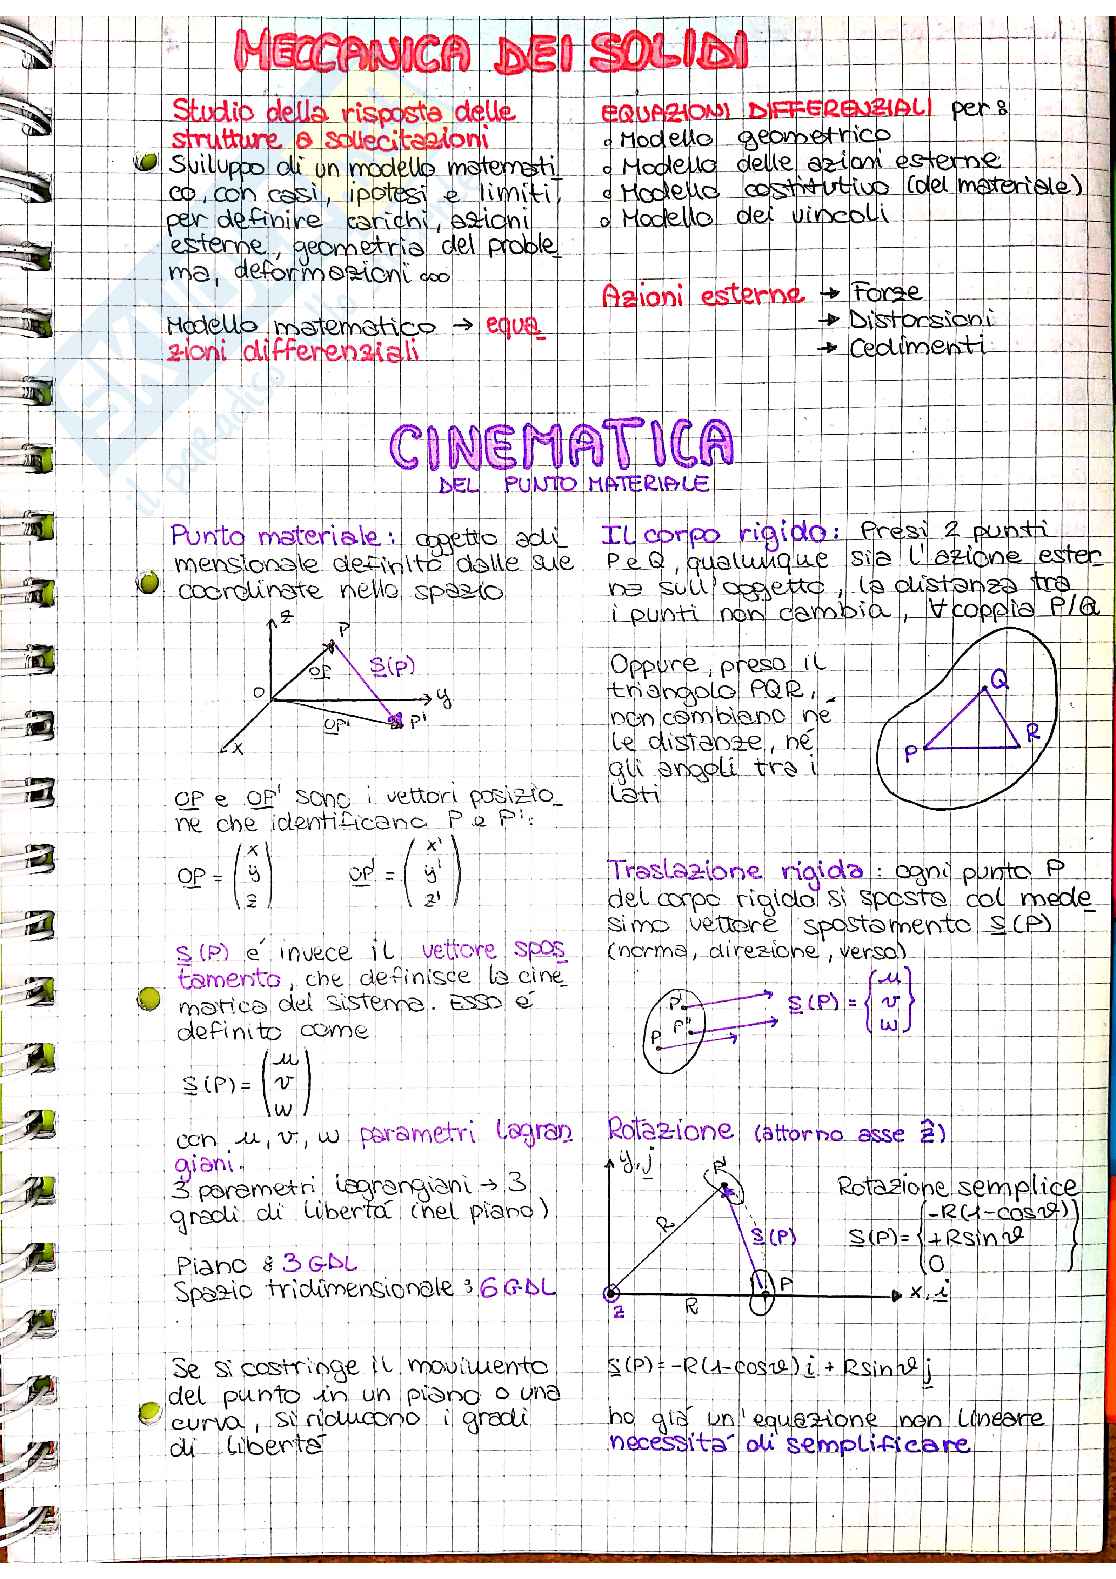 MECCANICA DEI SOLIDI
Studio della risposta delle
strutture a sollecitazioni
Sviluppo di un modello matemati_
co, con casi, ipotesi e limiti,
per definire carichi, azioni
esterne, geometria del proble_
ma, deformazioni ...
Modello matematico → equa_
zioni differenziali
EQUAZIONI DIFFERENZIALI per:
o Modello geometrico
o Modello delle azioni esterne
o Modello costitutivo (del materiale)
o Modello dei vincoli
Azioni esterne → Forze
→ Distorsioni
→ Cedimenti
CINEMATICA
DEL PUNTO MATERIALE
Punto materiale: oggetto adi_
mensionale definito dalle sue
coordinate nello spazio
z
P
OP
S(P)
O
y
OP'
P'
x
OP e OP' sono i vettori posizio_
ne che identificano P e P':
OP = (x y z) OP' = (x' y' z')
S(P) é invece il vettore spos_
tamento, che definisce la cine_
matica del sistema. Esso é
definito come
S(P) = (u v w)
con u, v, w parametri lagran_
giani.
3 parametri lagrangiani → 3
gradi di libertá (nel piano)
Piano : 3 GDL
Spazio tridimensionale : 6 GDL
Se si costringe il movimento
del punto in un piano o una
curva, si riducono i gradi
di libertá
Il corpo rigido: Presi 2 punti
P e Q, qualunque sia l'azione ester_
na sull'oggetto, la distanza tra
i punti non cambia, ∀ coppia P/Q
Oppure, preso il
triangolo PQR,
non cambiano né
le distanze, né
gli angoli tra i
lati
Q
P
R
Traslazione rigida: ogni punto P
del corpo rigido si sposta col mede_
simo vettore spostamento S(P)
(norma, direzione, verso)
P'
P''
P
S(P) = {u v w}
Rotazione (attorno asse ẑ)
y, j
P'
R
S(P)
P
z
R
x, i
Rotazione semplice
S(P) = {-R(1-cosϑ) +Rsinϑ 0}
S(P) = -R(1-cosϑ) i + Rsinϑ j
ho giá un'equazione non lineare
necessitá di semplificare